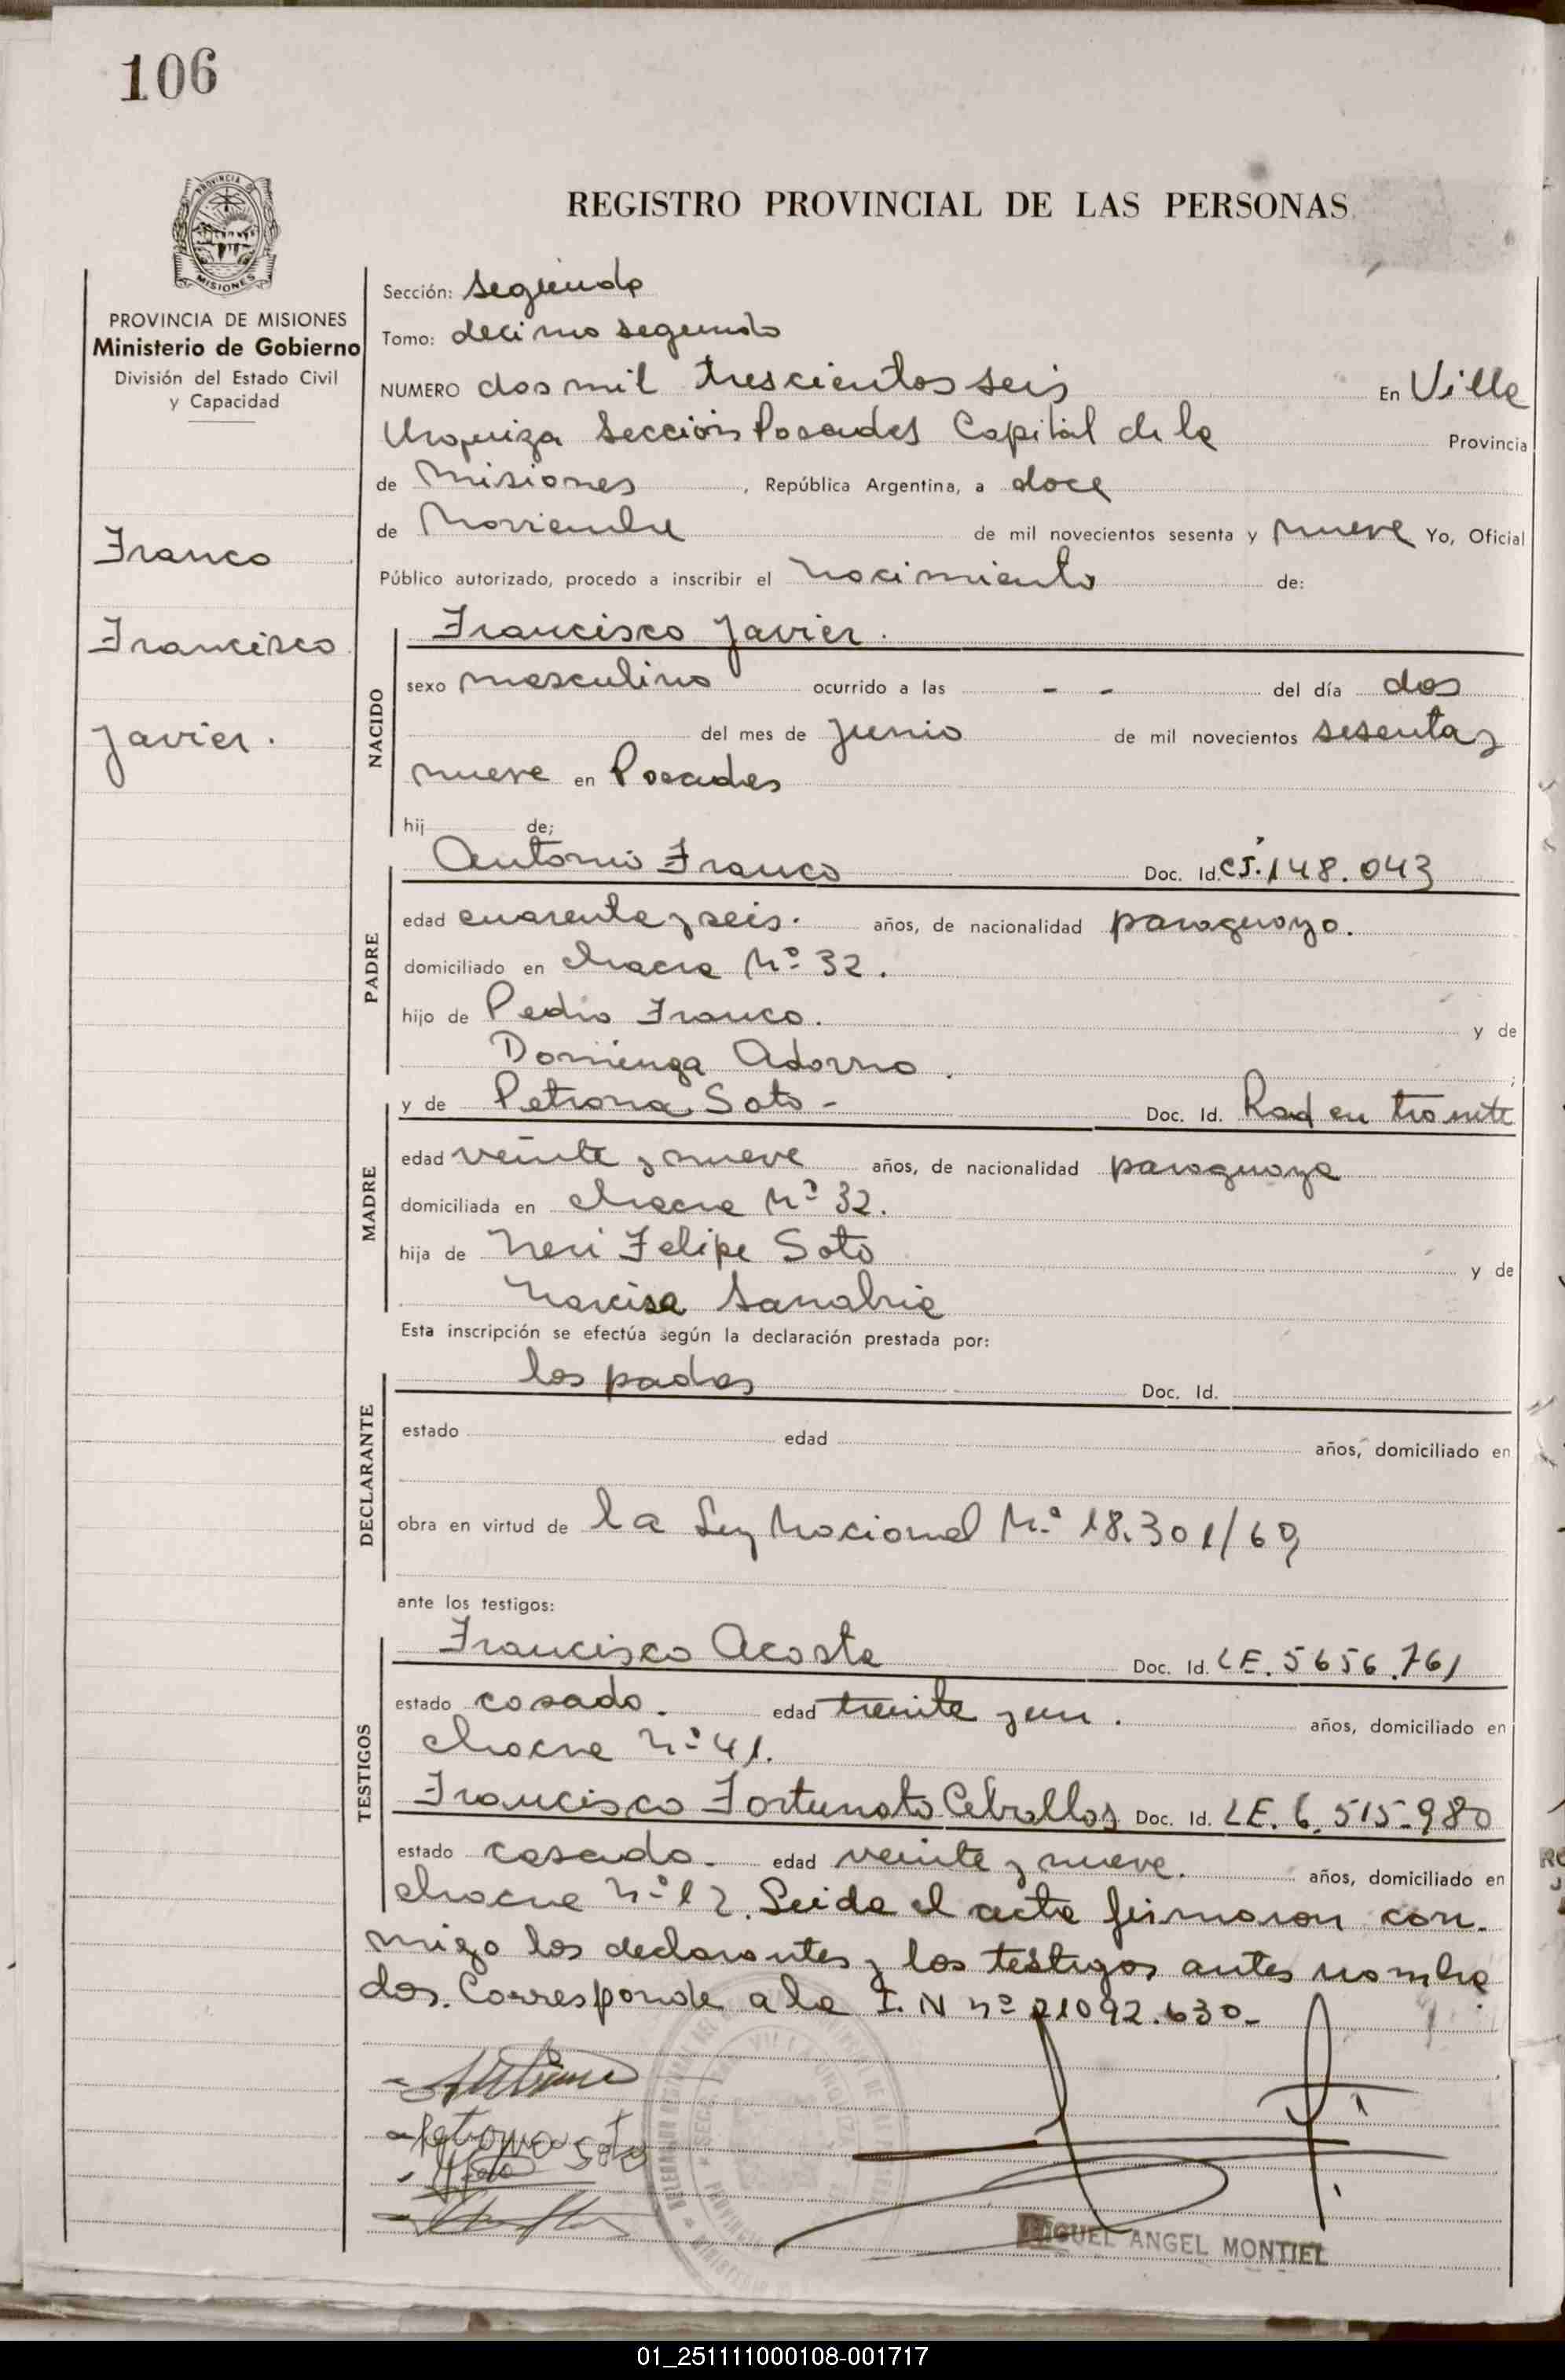 106
REGISTRO PROVINCIAL DE LAS PERSONAS
PROVINCIA DE
MISIONES
PROVINCIA DE MISIONES
Ministerio de Gobierno
División del Estado Civil
y Capacidad
Franco
Francisco
Javier.
Sección: segunda
Tomo: decimo segundo
NUMERO dos mil trescientos seis En Villa
Urquiza Sección Posadas Capital de la Provincia
de Misiones, República Argentina, a doce
de Noviembre de mil novecientos sesenta y nueve Yo, Oficial
Público autorizado, procedo a inscribir el nacimiento de:
NACIDO
Francisco Javier.
sexo masculino ocurrido a las - - del día dos
del mes de Junio de mil novecientos sesenta y
nueve en Posadas
hij de;
PADRE
Antonio Franco Doc. Id. CI. 148.043
edad cuarenta y seis. años, de nacionalidad paraguayo.
domiciliado en chacra Nº 32.
hijo de Pedro Franco. y de
Dominga Adorno.
MADRE
y de Petrona Soto - Doc. Id. Rad en tramite
edad veinte y nueve años, de nacionalidad paraguaya
domiciliada en chacra Nº 32.
hija de Neri Felipe Soto y de
Narcisa Sanabria
Esta inscripción se efectúa según la declaración prestada por:
DECLARANTE
los padres Doc. Id.
estado edad años, domiciliado en
obra en virtud de la Ley Nacional Nº 18.301/69
ante los testigos:
TESTIGOS
Francisco Acosta Doc. Id. LE. 5656.761
estado casado. edad treinta y un. años, domiciliado en
chacra Nº 41.
Francisco Fortunato Ceballos Doc. Id. LE. 6.515-980
estado casado. edad veinte y nueve. años, domiciliado en
chacra nº 12. Leida el acta firmaron con-
migo los declarantes y los testigos antes nombra
dos. Corresponde a la I.N nº 21092.630-
Petrona Soto
MIGUEL ANGEL MONTIEL
01_251111000108-001717